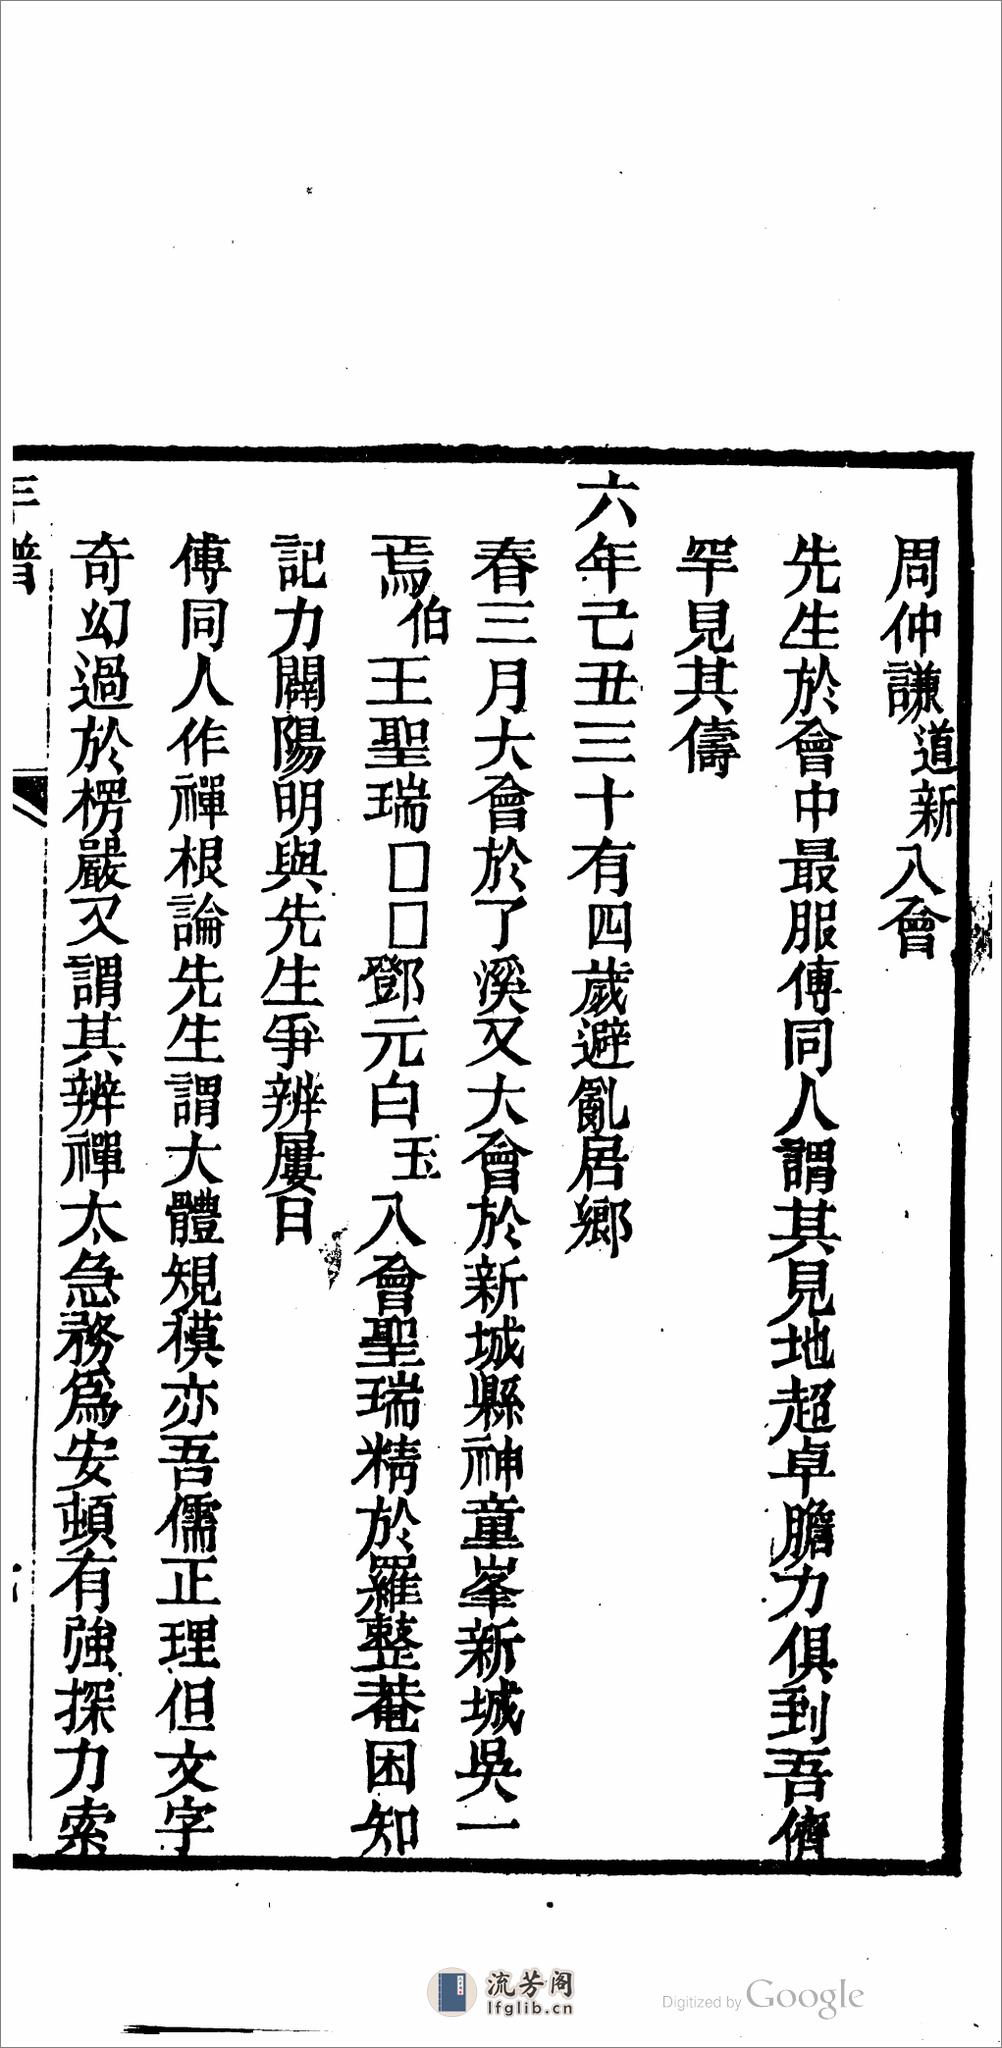 周仲謙道新入會
先生於會中最服傅同人謂其見地超卓膽力俱到吾儕
罕見其儔
六年己丑三十有四歲避亂居鄉
春三月大會於了溪又大會於新城縣神童峯新城吳一
焉伯王聖瑞□□鄧元白玉入會聖瑞精於羅整菴困知
記力闢陽明與先生爭辨屢日
傅同人作禪根論先生謂大體規模亦吾儒正理但文字
奇幻過於楞嚴又謂其辨禪太急務爲安頓有強探力索
年譜
流芳阁
lfglib.cn
Digitized by Google